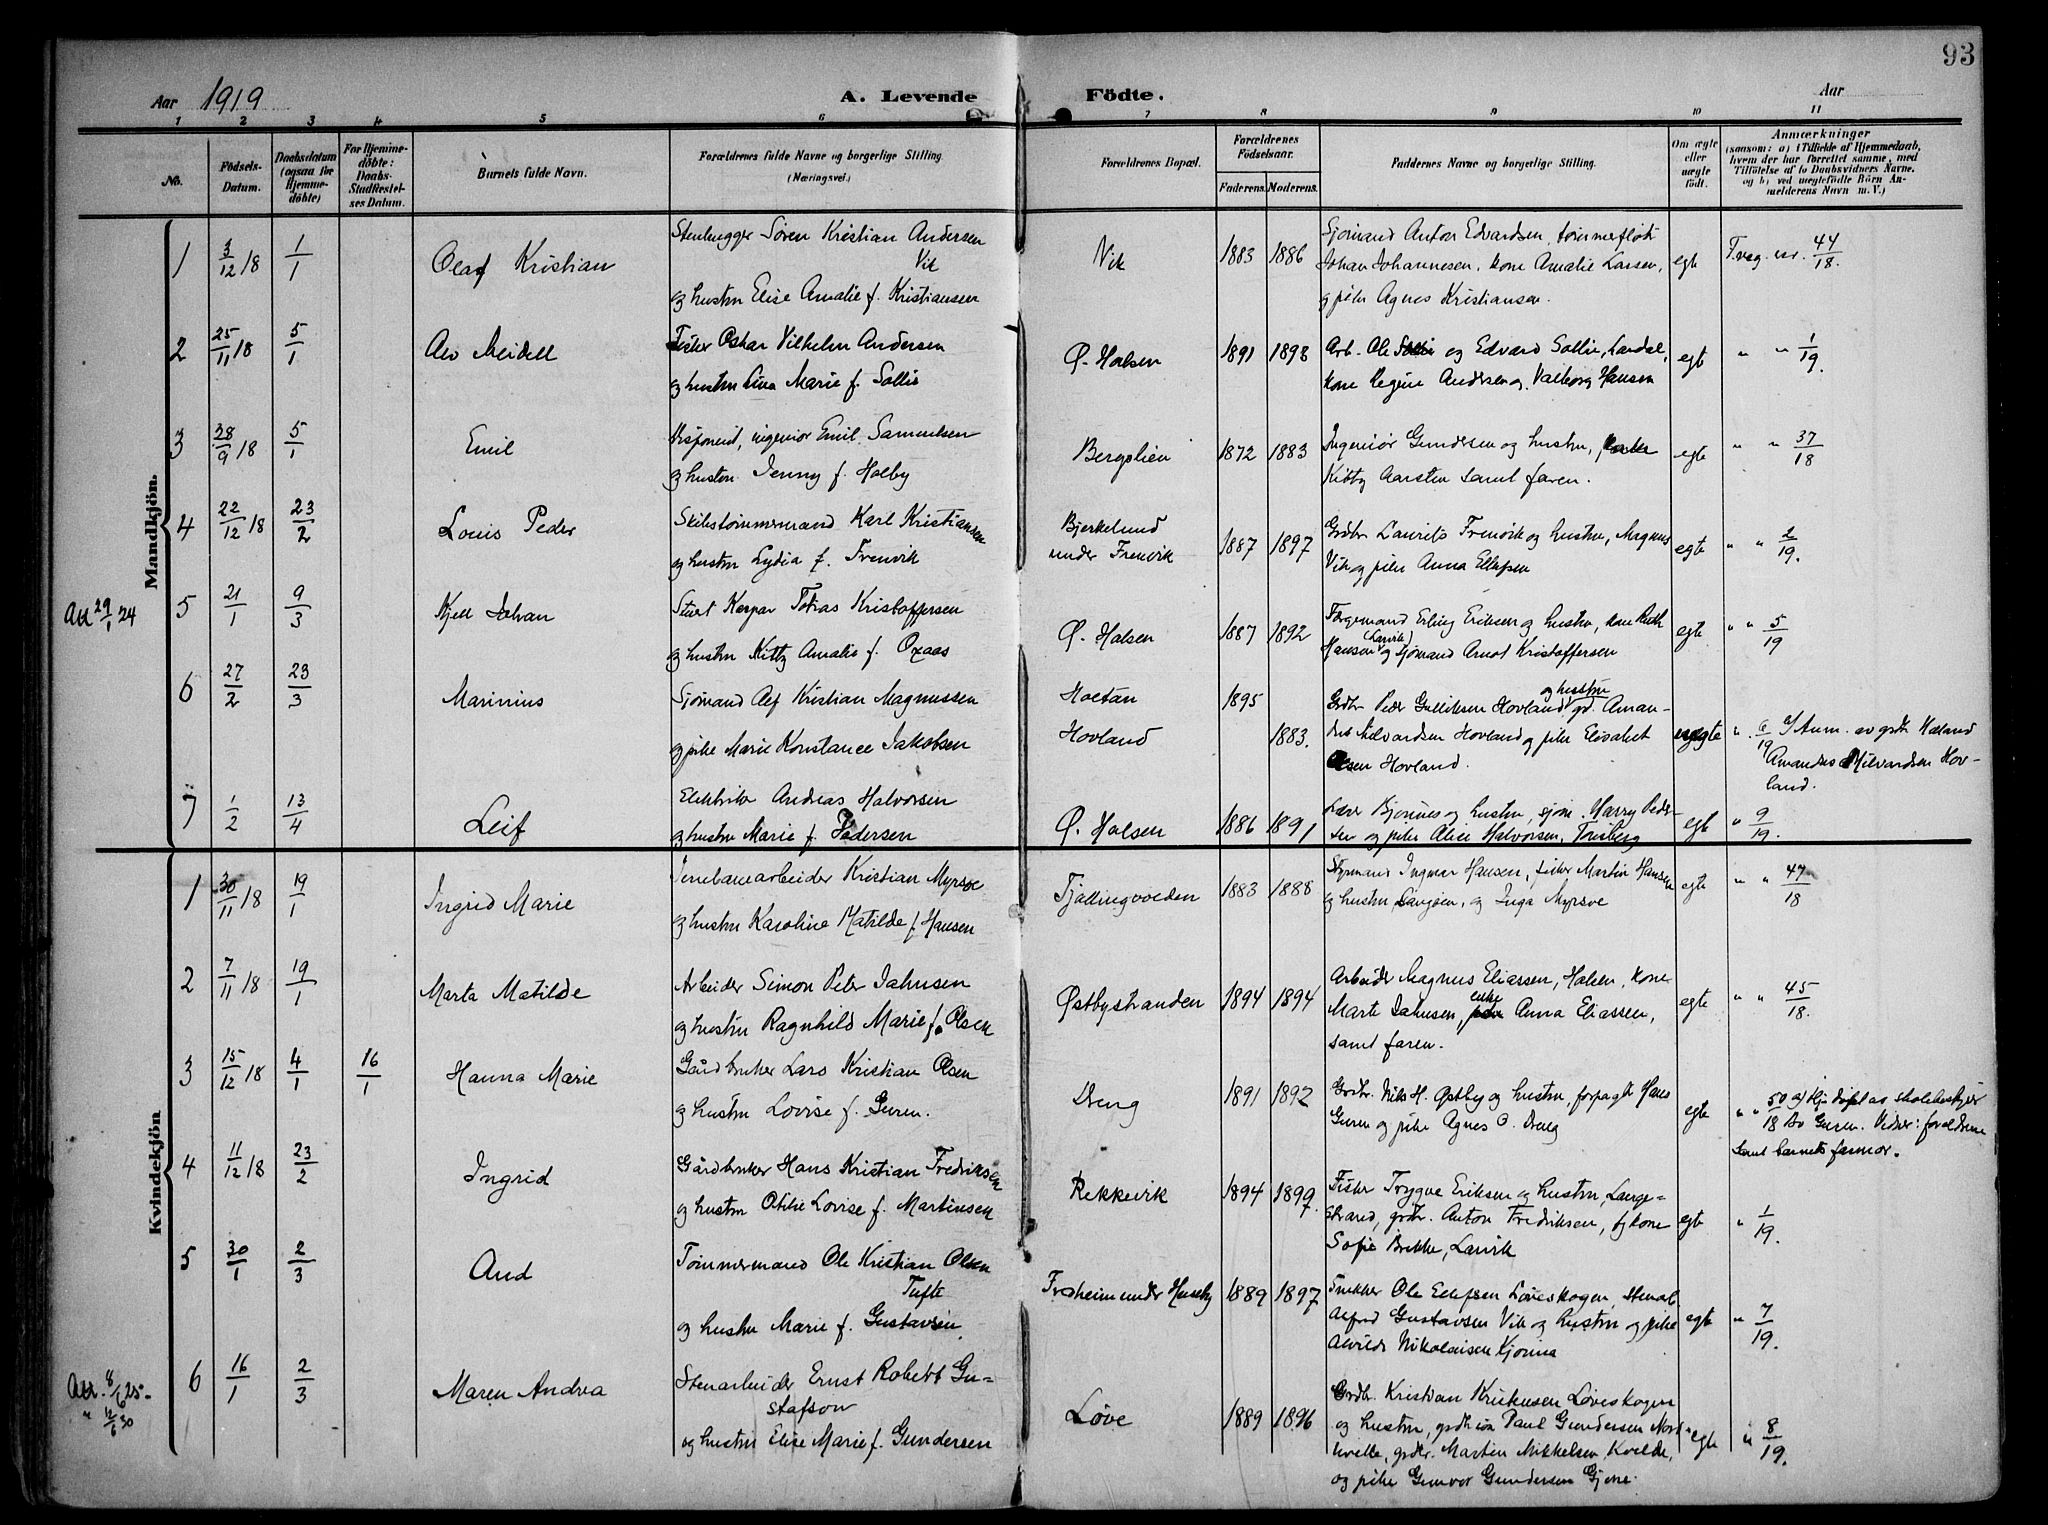 93
Aar 1919 A. Levende Födte. Aar
1 2 3 4 5 6 7 8 9 10 11
No. Födsels-Datum. Daabsdatum (ogsaa for Hjemme-döbte) For Hjemme-döbte: Daabs-Stadfæstel-ses Datum. Barnets fulde Navn. Forældrenes fulde Navne og borgerlige Stilling. (Næringsvei.) Forældrenes Bopæl. Forældrenes Födselsaar. Faderens. Moderens. Faddernes Navne og borgerlige Stilling. Om ægte eller uægte födt. Anmærkninger (saasom: a) i Tilfælde af Hjemmedaab, hvem der har forrettet samme, med Tilföielse af to Daabsvidners Navne, og b) ved uægtefödte Börn An-melderens Navn m. V.)
Mandkjön.
1 3/12 18 1/1 Olaf Kristian Stenhugger Sören Kristian Andersen Vik
og hustru Elise Amalie f. Kristiansen Vik 1883 1886 Sjömand Anton Edvardsen, tömmerfløt.
Johan Johannesen, kone Amalie Larsen,
og pike Agnes Kristiansen. egte Tr.veg. nr. 44/18.
2 25/11 18 5/1 Alv Meidell Fisker Oskar Vilhelm Andersen
og hustru Lina Marie f. Sollie Ø. Halsen 1891 1898 Arb. Ole Sollie og Edvard Sollie, Lardal,
kone Regine Andersen og Valborg Hansen egte " " 1/19.
3 28/9 18 5/1 Emil Disponent, ingeniör Emil Samuelsen
og hustru Jenny f. Holby Bergslien 1872 1883 Ingeniör Gundersen og hustru,
Kitty Aarsten samt faren. egte " " 37/18
4 22/12 18 23/2 Louis Peder Skibstömmermand Karl Kristiansen
og hustru Lydia f. Fremvik Bjerkelund
under Fremvik 1887 1897 Grdbr Laurits Fremvik og hustru, Magnus
Vik og pike Anna Ellefsen egte " " 2/19.
Att 29/1 24 5 21/1 9/3 Kjell Johan Stuert Kaspar Tobias Kristoffersen
og hustru Kitty Amalie f. Oxaas Ø. Halsen 1887 1892 Färgemand Erling Eriksen og hustru, kone Ruth
Hansen (Larvik) og sjömand Arnot Kristoffersen egte " " 5/19
6 27/2 23/3 Marinius Sjömand Alf Kristian Magnussen
og pike Marie Konstance Jakobsen Holtan
Hovland 1895
1883. Grdbr Peder Gulliksen Hovland og hustru, gd. Aman-
dus Milvardsen Hovland og pike Elisabet
Olsen Hovland. uegte " 6/19 b) Anm. av grdbr. Hovland
Amandus Milvardsen Hov-
land.
7 1/2 13/4 Leif Elektriker Andreas Halvorsen
og hustru Marie f. Pedersen Ø. Halsen 1886 1891 Lærer Bjönnes og hustru, sjöm. Harry Peder-
sen og pike Alice Halvorsen, Tönsberg egte " 9/19.
Kvindekjön
1 30/11 18 19/1 Ingrid Marie Jernbanearbeider Kristian Myrsve
og hustru Karoline Matilde f. Hansen Tjöllingvolden 1883 1888 Styrmand Ingmar Hansen, fisker Martin Hansen
og hustru, Langöen, og Inga Myrsve egte " " 47/18
2 7/11 18 19/1 Marta Matilde Arbeider Simon Peter Jahnsen
og hustru Ragnhild Marie f. Olsen Østbystranden 1894 1894 Arbeider Magnus Eliassen, Halsen, kone
Marte Jahnsen, enke Anna Eliassen,
samt faren. egte " " 45/18.
3 15/12 18 4/1 16/1 Hanna Marie Gårdbruker Lars Kristian Olsen
og hustru Lovise f. Guren. Dreng 1891 1892 Grdbr. Nils H. Østby og hustru, forpagt. Hans
Guren og pike Agnes O. Dreng egte " " 50/18 a) Hj.döpt av skolebestyrer
Bo Guren. Vidner: foreldrene
samt barnets farmor.
4 11/12 18 23/2 Ingrid Gårdbruker Hans Kristian Fredriksen
og hustru Otilie Lovise f. Martinsen Rekkevik 1894 1899. Fisker Trygve Eriksen og hustru, Lange-
strand, grdbr. Anton Fredriksen, og kone
Sofie Brekke, Larvik egte " 1/19.
5 30/1 2/3 Aud Tömmermand Ole Kristian Olsen
Tufte
og hustru Marie f. Gustavsen Froheim under Huseby 1889 1897 Snekker Ole Ellefsen Löveskogen, stenarb.
Alfred Gustavsen Vik og hustru og pike
Alvilde Nikolaisen Kjönnö egte " 7/19.
Att. 8/6 25.
" 12/6 30 6 16/1 2/3 Maren Andrea Stenarbeider Ernst Robert Gu-
stafson
og hustru Elise Marie f. Gundersen Löve 1889 1896 Grdbr. Kristian Kristensen Löveskogen
og hustru, grdbr.sön Paul Gundersen Nord-
kvelle, grdbr. Martin Mikkelsen Kvelde,
og pike Gunvor Gundersen Gjone. egte " 8/19.